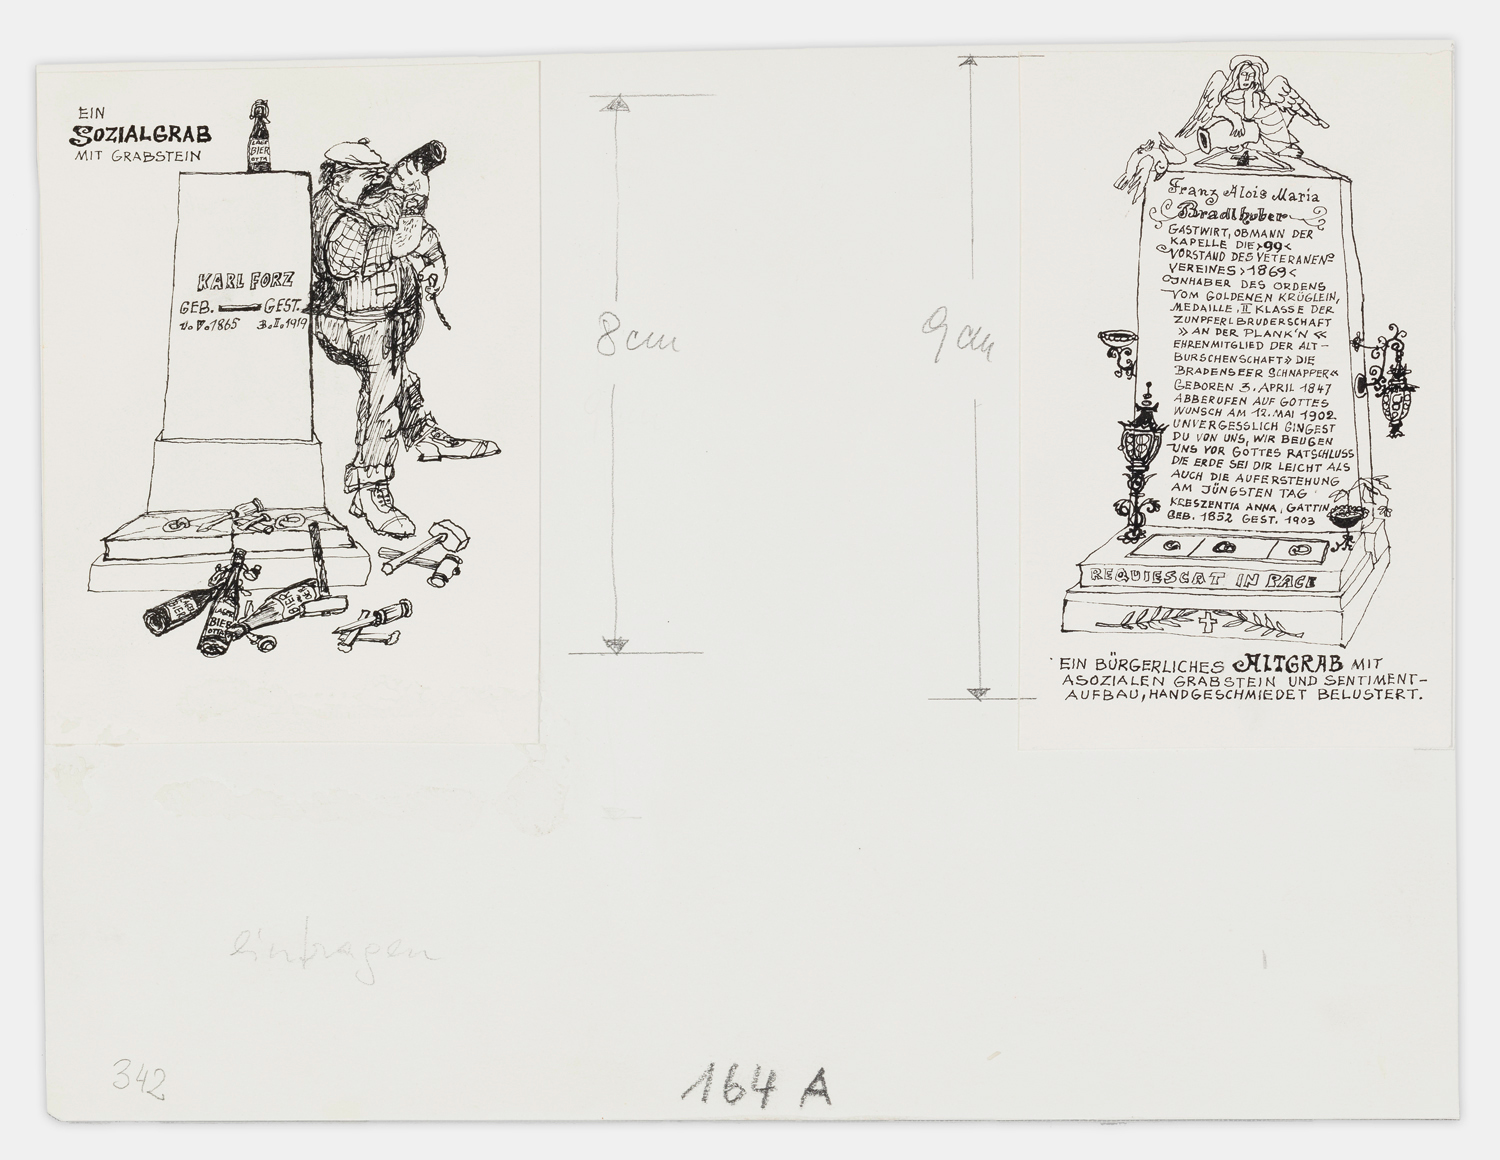 EIN
SOZIALGRAB
MIT GRABSTEIN
LAGER
BIER
OTTA
KARL FORZ
GEB. GEST.
11.V.1865 3.II.1919
LAGER
BIER
OTTA
8 cm
9 cm
Franz Alois Maria
Bradlhuber
GASTWIRT, OBMANN DER
KAPELLE DIE >99<
VORSTAND DES VETERANEN=
VEREINES >1869<
INHABER DES ORDENS
VOM GOLDENEN KRÜGLEIN,
MEDAILLE, II KLASSE DER
ZUNPFERLBRUDERSCHAFT
» AN DER PLANK'N «
EHRENMITGLIED DER ALT-
BURSCHENSCHAFT» DIE
BRADENSEER SCHNAPPER«
GEBOREN 3. APRIL 1847
ABBERUFEN AUF GOTTES
WUNSCH AM 12. MAI 1902
UNVERGESSLICH GINGEST
DU VON UNS, WIR BEUGEN
UNS VOR GOTTES RATSCHLUSS
DIE ERDE SEI DIR LEICHT ALS
AUCH DIE AUFERSTEHUNG
AM JÜNGSTEN TAG
KRESZENTIA ANNA, GATTIN
GEB. 1852 GEST. 1903
REQUIESCAT IN PACE
EIN BÜRGERLICHES ALTGRAB MIT
ASOZIALEN GRABSTEIN UND SENTIMENT-
AUFBAU, HANDGESCHMIEDET BELUSTERT.
eintragen
342
164 A